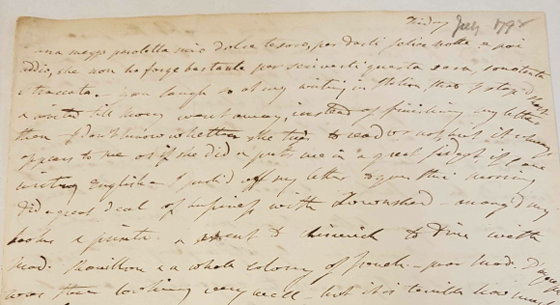 Friday July 1798
una mezza paroletta mio dolce tesoro, per darti felice notte e poi
addio, che non ho forze bastante per scriverti questa sera, son tanto
stracca - you laugh so at my writing in Italian, that I stop'd
a minute till Mary went away, instead of finishing my letter
then I don't know whether she tries to read or not but it always
appears to me as if she did & puts me in a great of
writing English - I sent off my letter to you this morning
did a great deal of business with Townshend - mang'd my
books & - & went to Chiswick to Dine with
Mad. & a whole colony of french - poor Mad.
was there looking very well - but it is